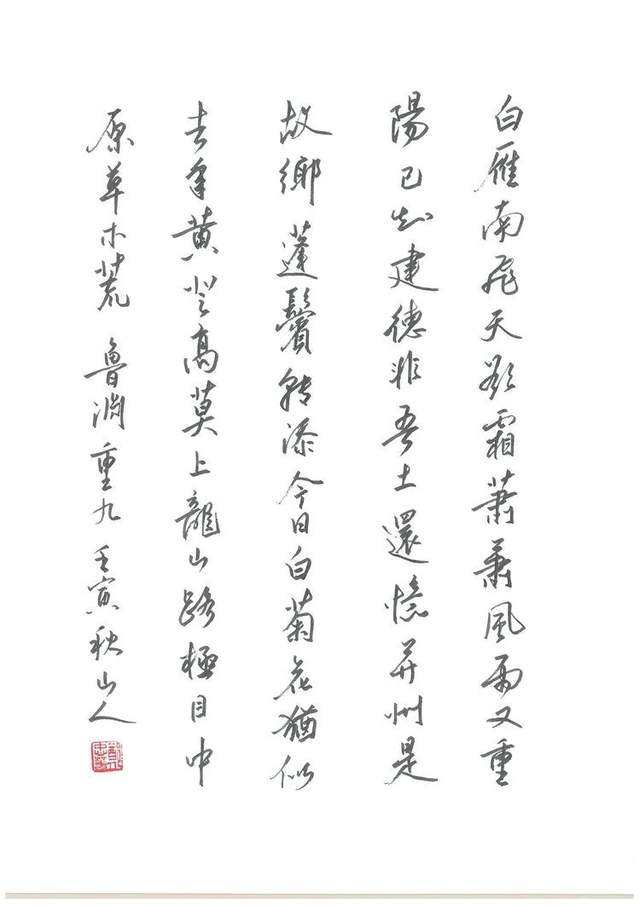 白雁南飛天欲霜蕭蕭風雨又重
陽已知建德非吾土還憶并州是
故鄉蓬鬢轉添今日白菊花猶似
去年黃登高莫上龍山路極目中
原草木荒 魯淵重九 壬寅秋山人